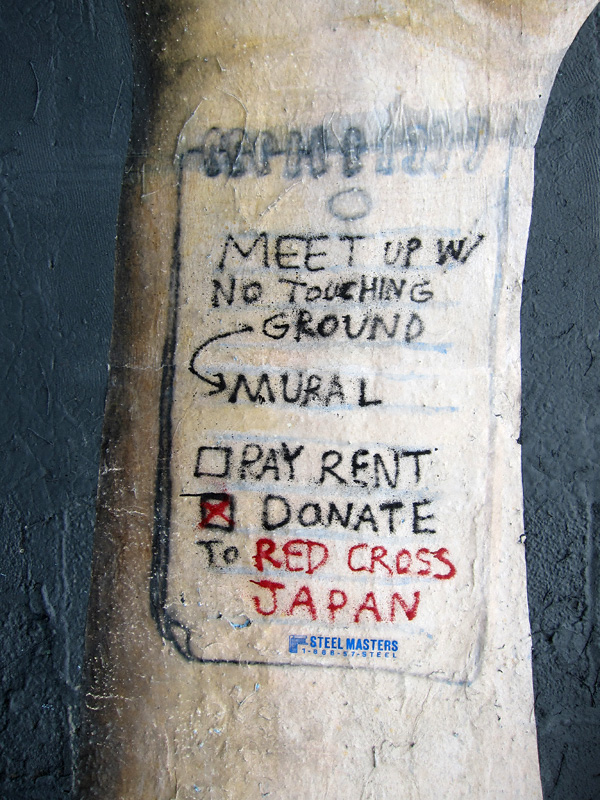 MEET UP W/
NO TOUCHING
GROUND
MURAL
PAY RENT
DONATE
TO RED CROSS
JAPAN
STEEL MASTERS
1-888-57-STEEL